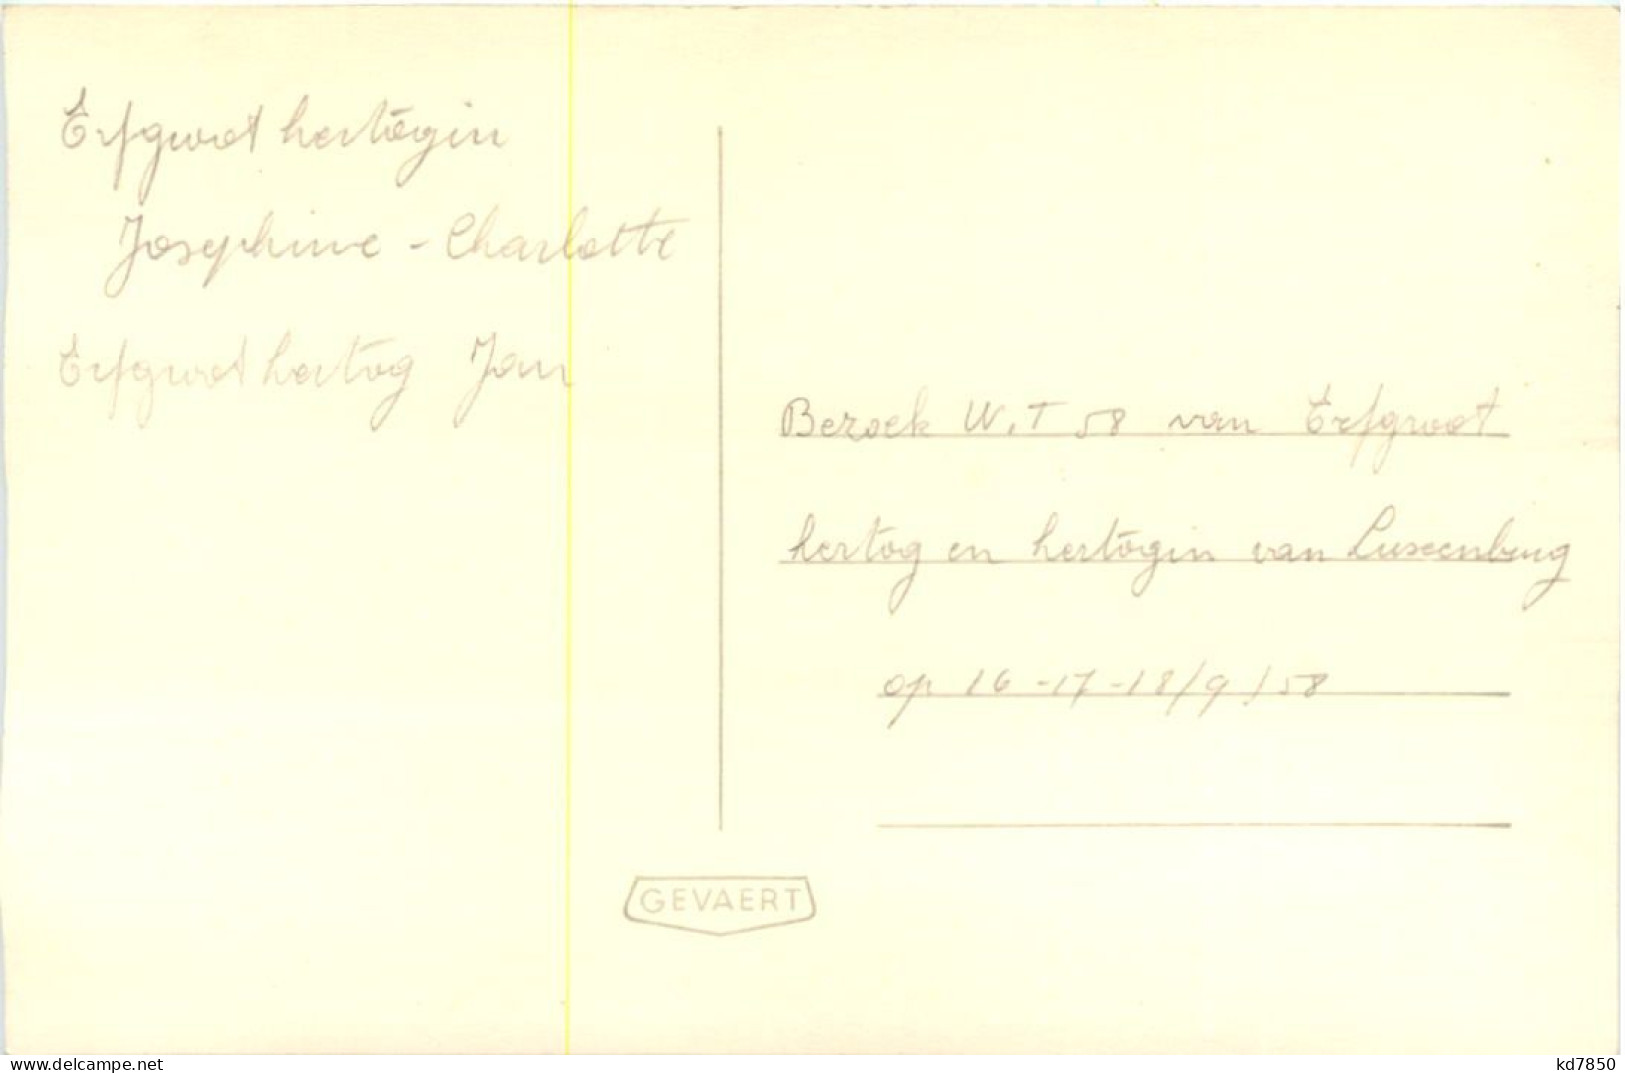 Erfgroot hertogin
Josephine - Charlotte
Erfgroot hertog Jan
Bezoek W.T 58 van Erfgroot
hertog en hertogin van Luxemburg
op 16-17-18/9/58
GEVAERT
www.delcampe.net
kd7850